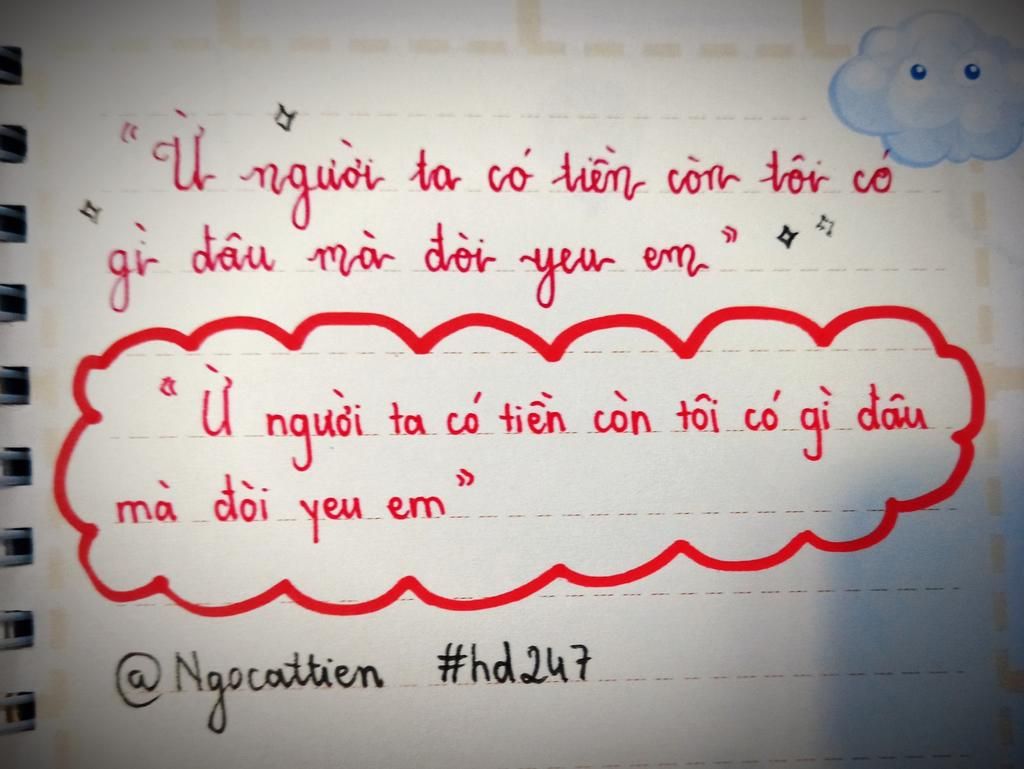 "Ừ người ta có tiền còn tôi có
gì đâu mà đòi yeu em"
"Ừ người ta có tiền còn tôi có gì đâu
mà đòi yeu em"
@Ngocattien #hd247